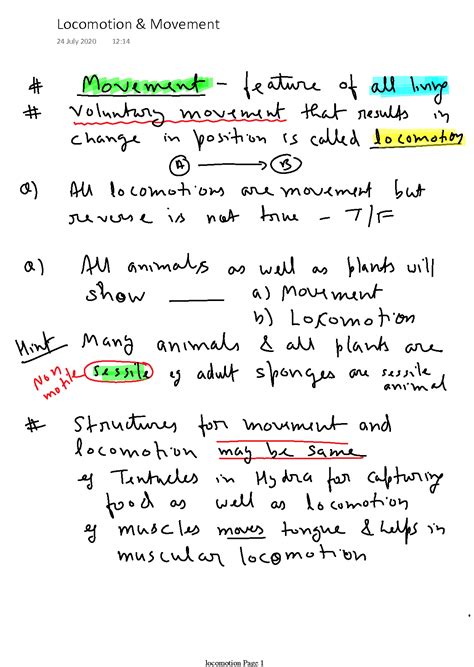 Locomotion & Movement
24 July 2020 12:14
# Movement - feature of all living
# Voluntary movement that results in
change in position is called locomotion
A → B
Q) All locomotions are movement but
reverse is not true - T/F
Q) All animals as well as plants will
show ____ a) Movement
b) Locomotion
Hint Many animals & all plants are
Non motile sessile eg adult sponges are sessile animal
# Structures for movement and
locomotion may be same
eg Tentacles in Hydra for capturing
food as well as locomotion
eg muscles moves tongue & helps in
muscular locomotion
locomotion Page 1